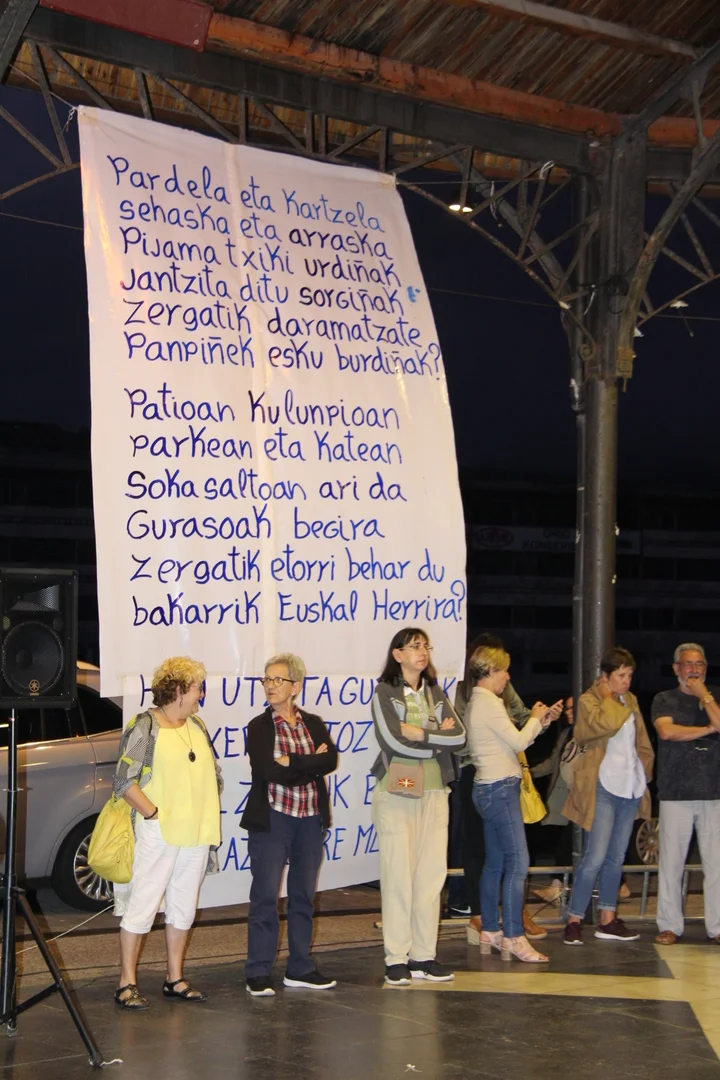 Pardela eta kartzela
sehaska eta arraska
Pijama txiki urdiñak
jantzita ditu sorgiñak
Zergatik daramatzate
Panpiñek esku burdiñak?
Patioan kulunpioan
parkean eta katean
Sokasaltoan ari da
Gurasoak begira
Zergatik etorri behar du
bakarrik Euskal Herrira?